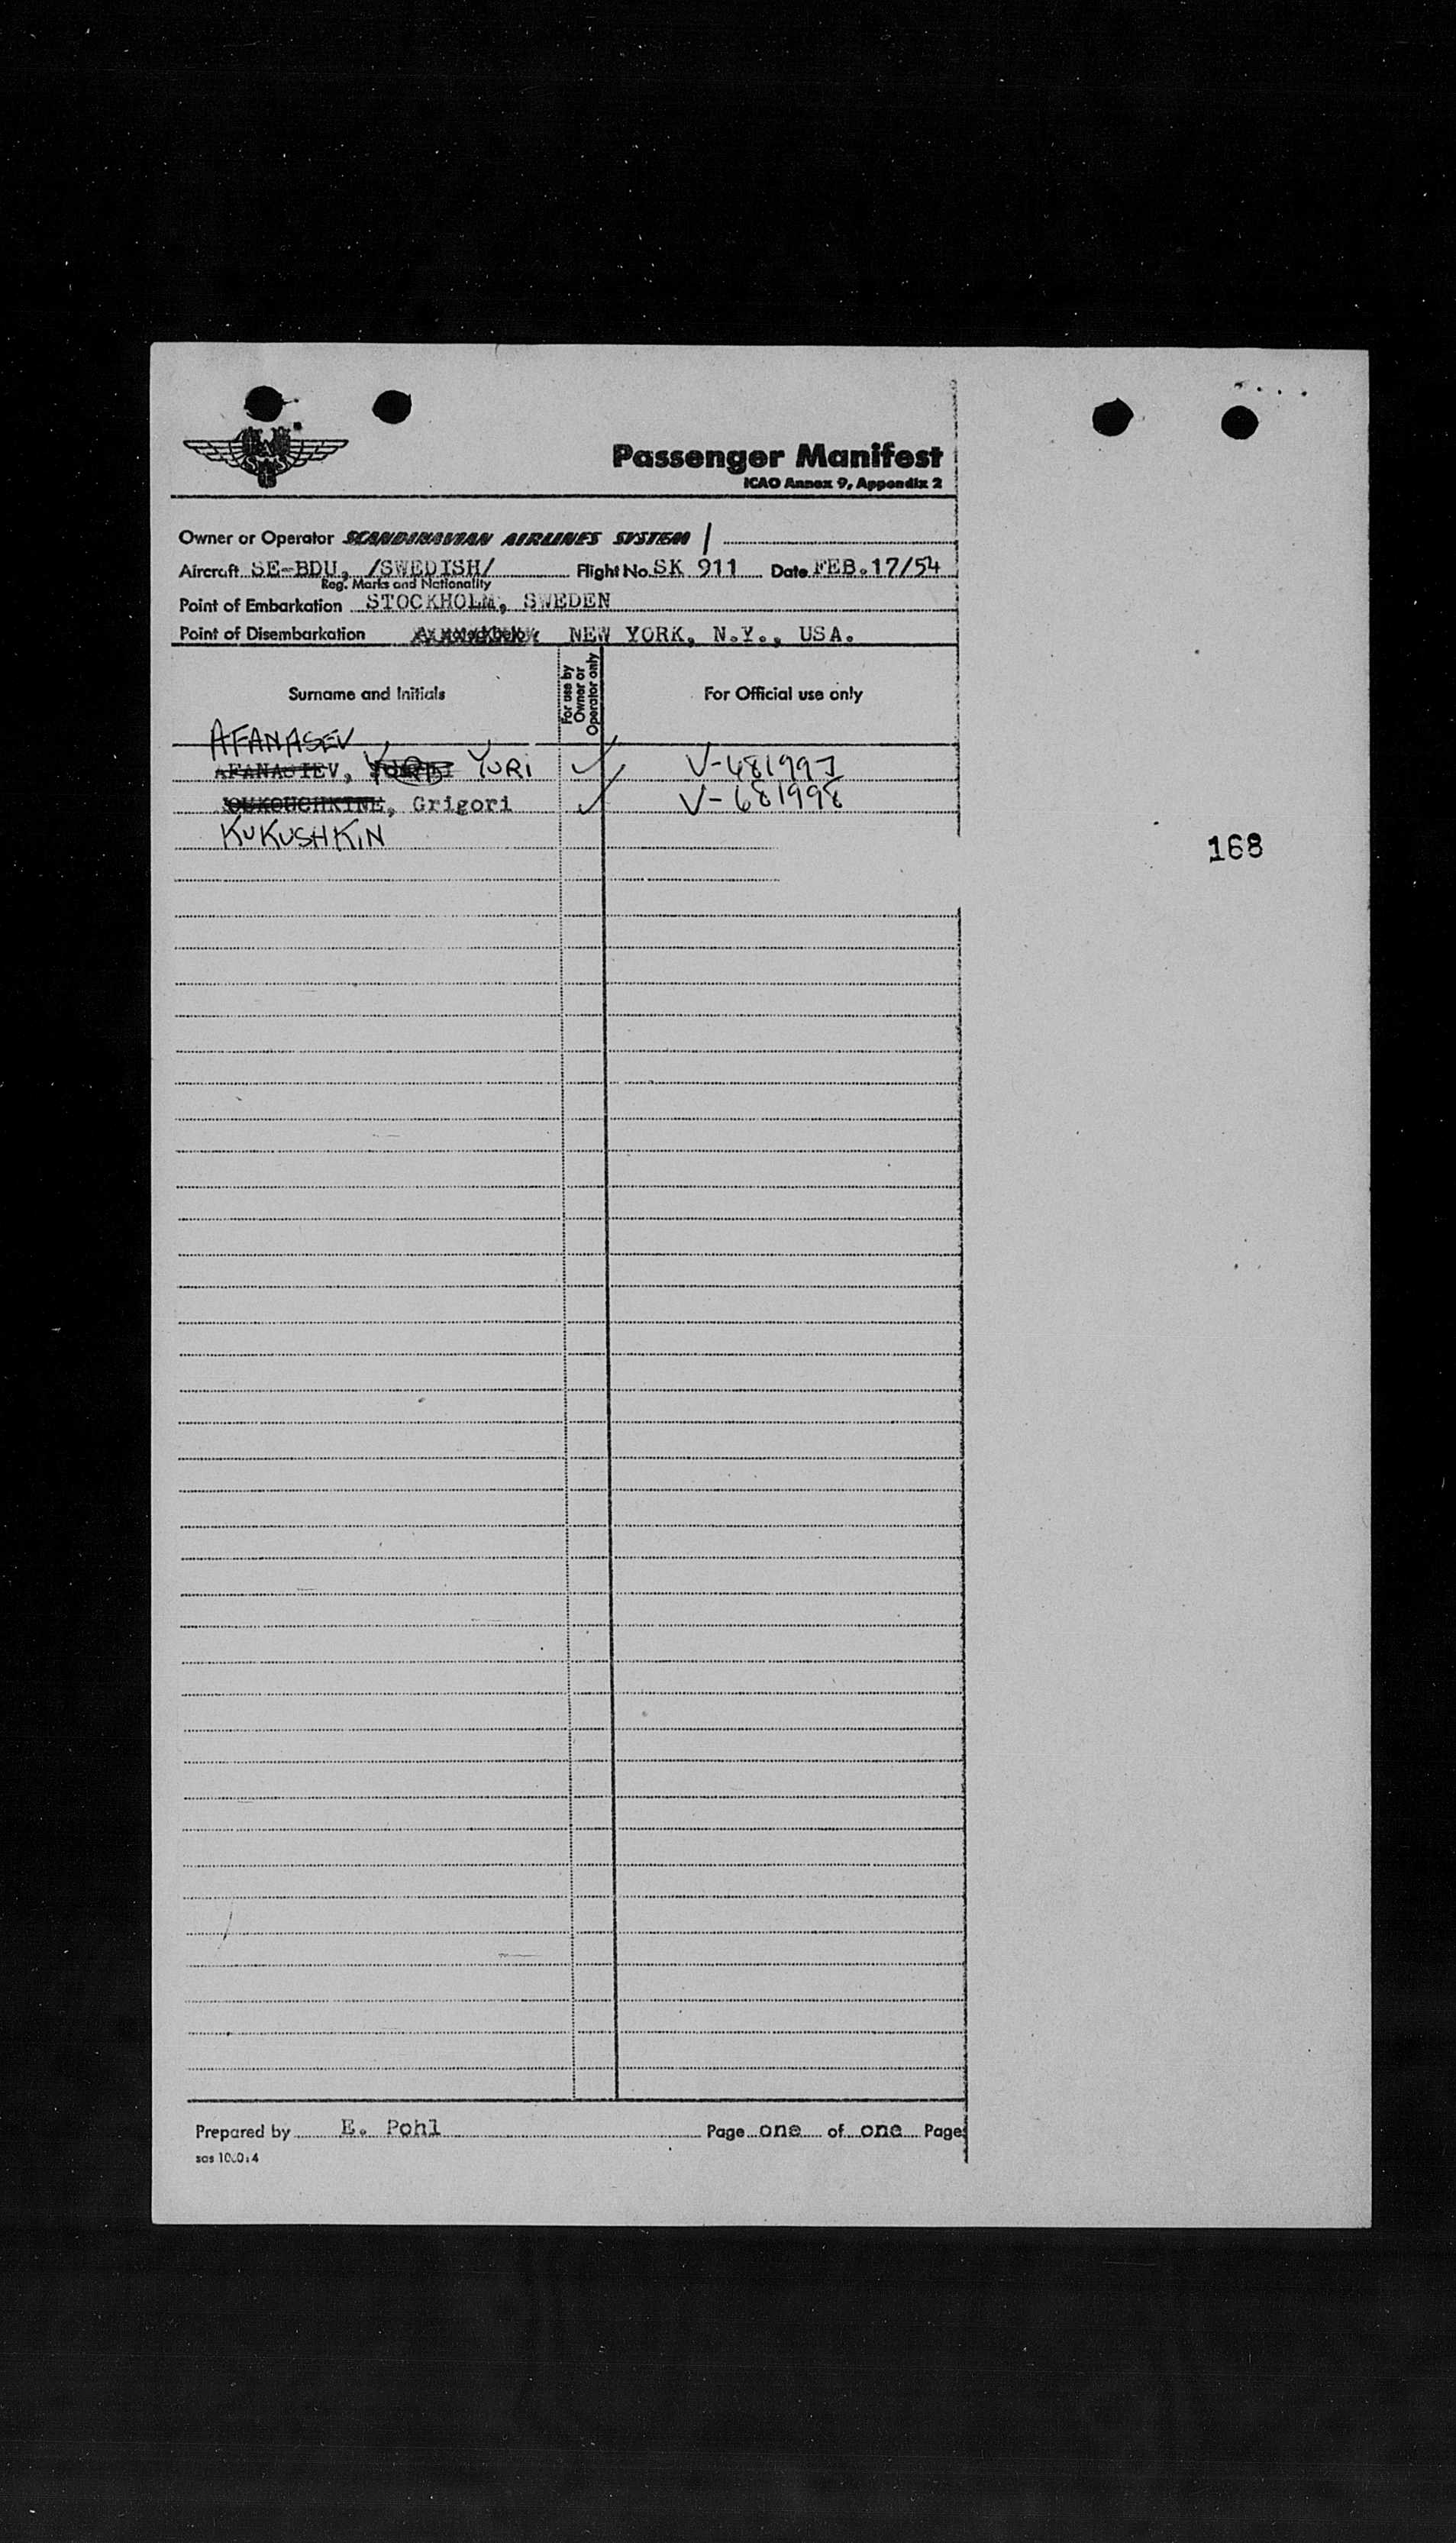 Passenger Manifest
ICAO Annex 9, Appendix 2
Owner or Operator SCANDINAVIAN AIRLINES SYSTEM
Aircraft SE-BDU, /SWEDISH/ Flight No. SK 911 Date FEB.17/54
Reg. Marks and Nationality
Point of Embarkation STOCKHOLM, SWEDEN
Point of Disembarkation NEW YORK, N.Y., USA.
Surname and Initials
For use by Owner or Operator only
For Official use only
AFANASEV
AFANASIEV, YURI V-481997
, Grigori V-681998
KUKUSHKIN
168
Prepared by E. Pohl Page one of one Pages
sas 1000:4